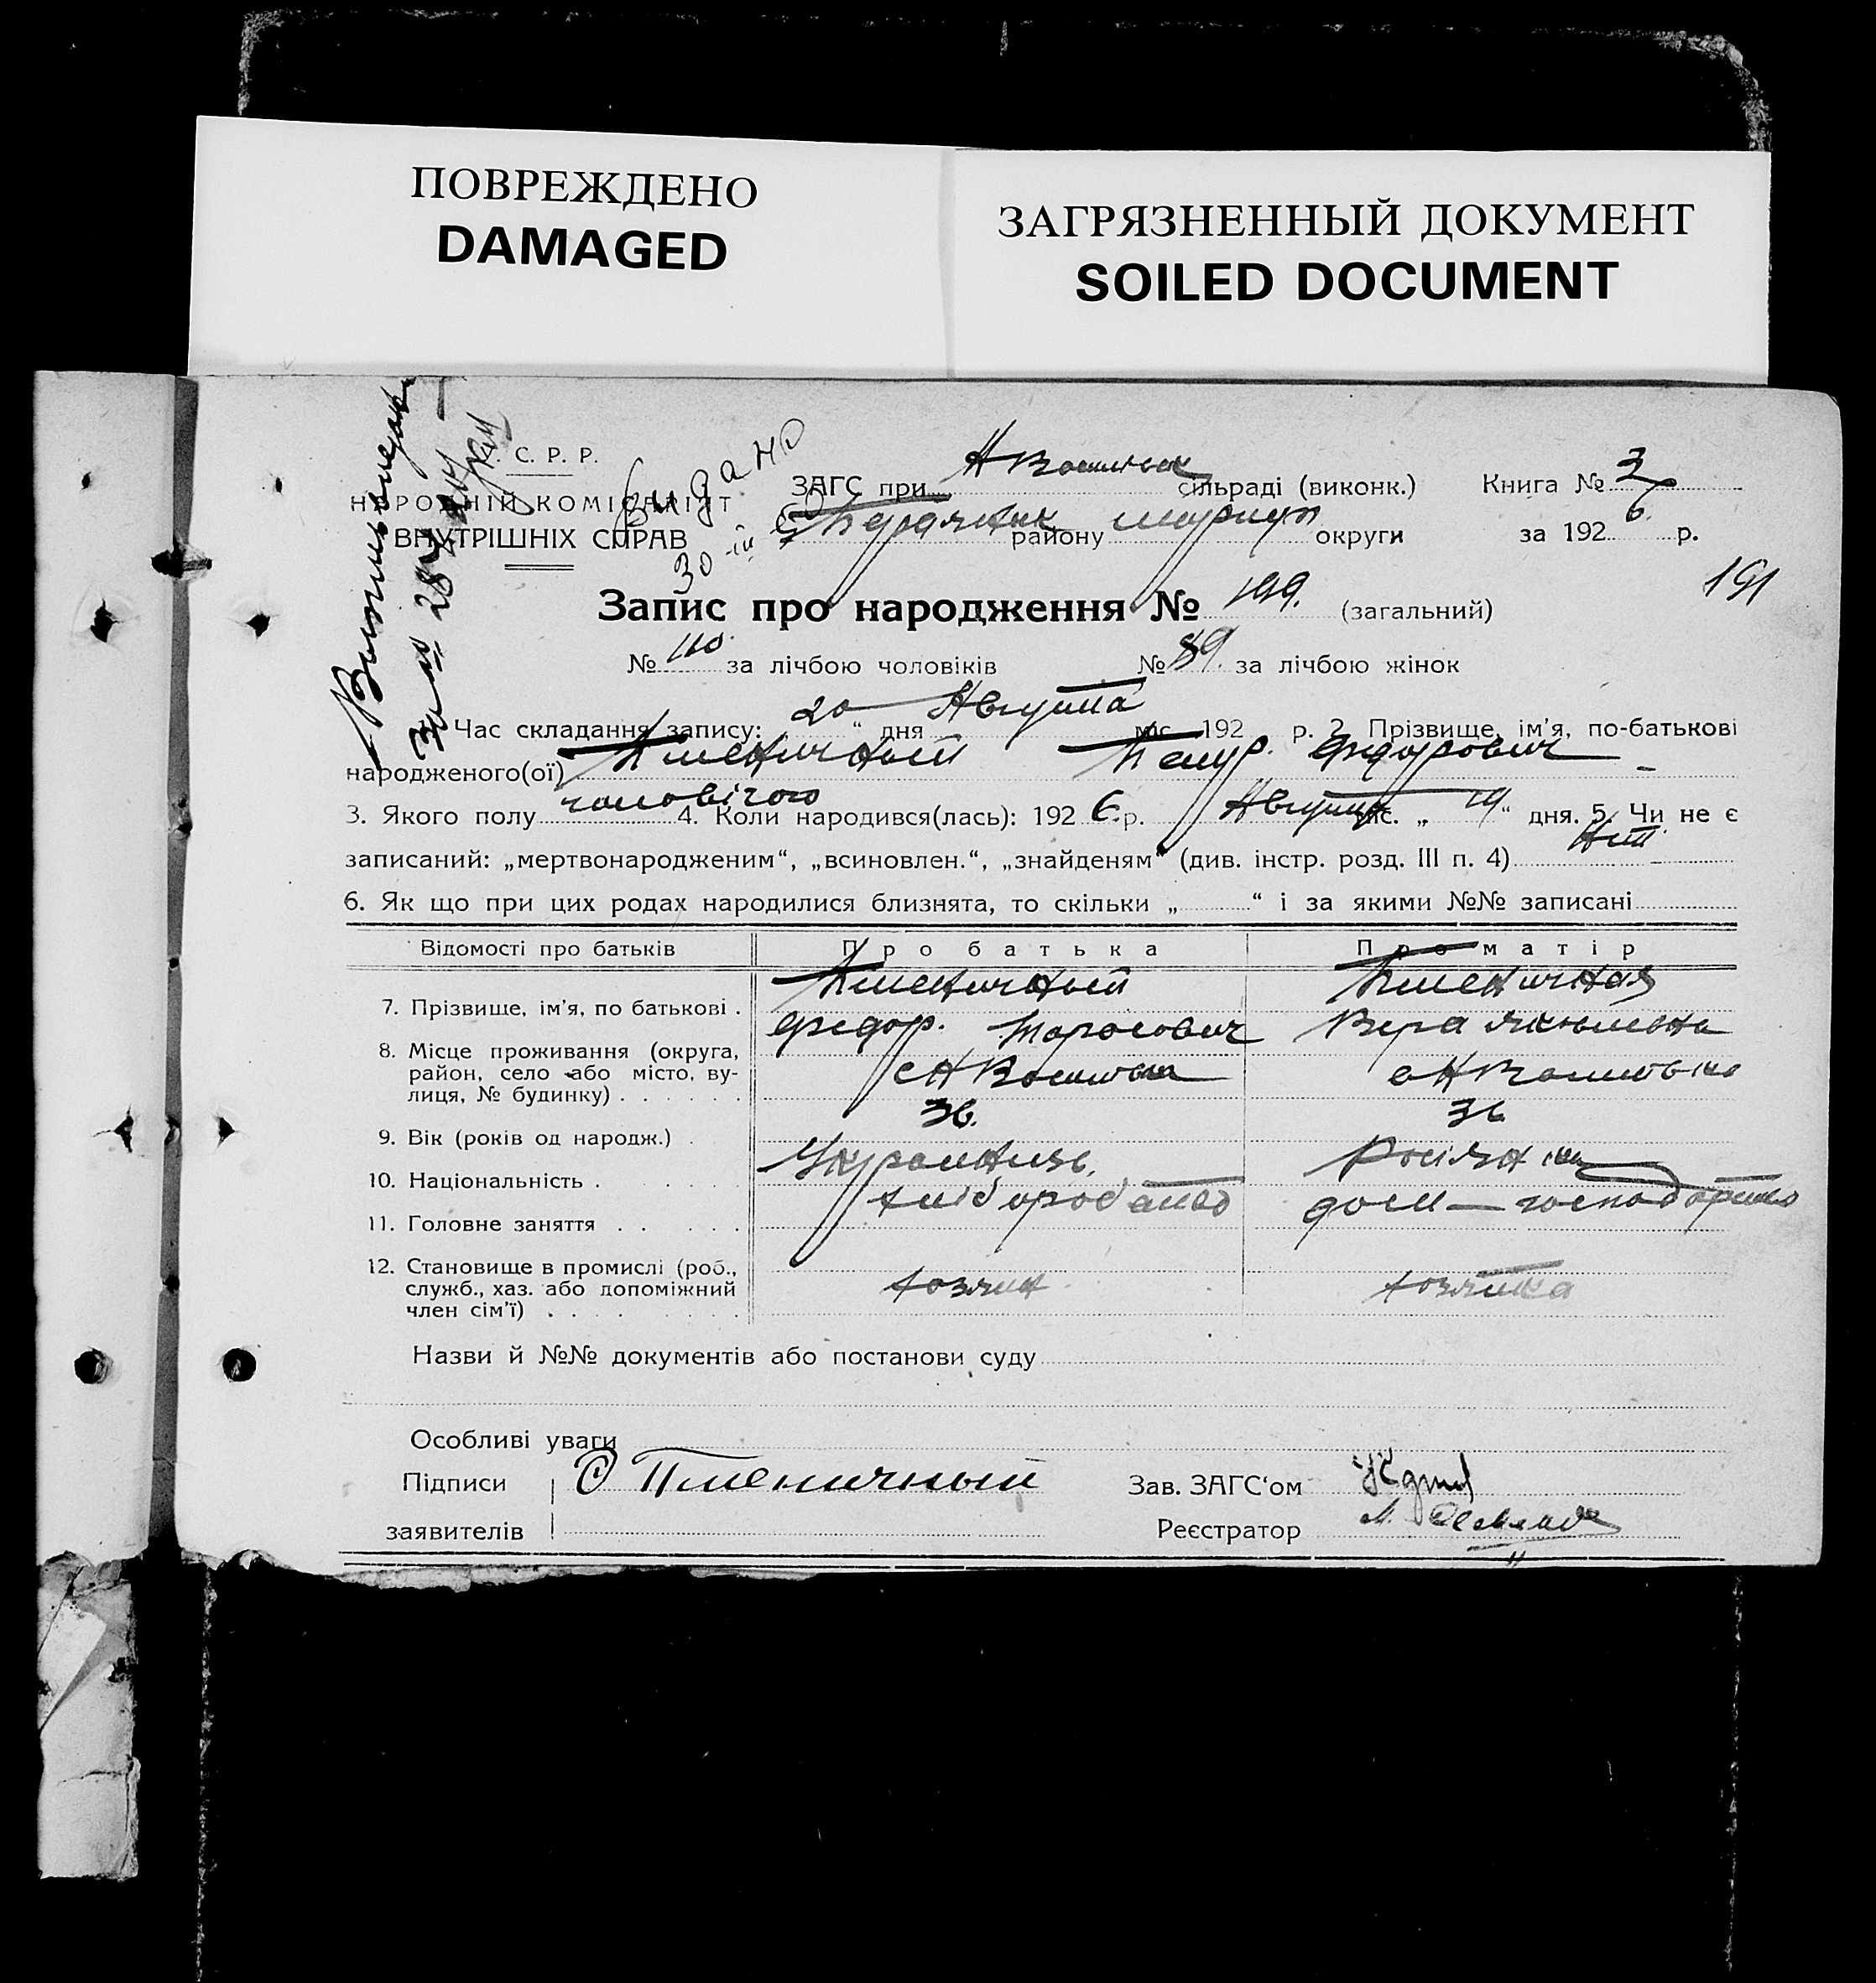 ПОВРЕЖДЕНО
DAMAGED
ЗАГРЯЗНЕННЫЙ ДОКУМЕНТ
SOILED DOCUMENT
С. Р. Р.
НАРОДНІЙ КОМІСАРІЯТ
ВНУТРІШНІХ СПРАВ
видано
ЗАГС при сільраді (виконк.) Книга № 3
району округи за 1926 р.
191
Запис про народження № 199. (загальний)
№ 110 за лічбою чоловіків № 89. за лічбою жінок
Час складання запису: 20 " дня Августа міс. 192 р. 2. Прізвище, ім'я, по-батькові
народженого(ої) Пшеничный Петр. Федорович
3. Якого полу чоловічого 4. Коли народився(лась): 1926 р. Августа міс. „ 19 " дня. 5. Чи не є
записаний: „мертвонародженим“, „всиновлен.“, „знайденям“ (див. інстр. розд. III п. 4)
6. Як що при цих родах народилися близнята, то скільки „ “ і за якими №№ записані
Відомості про батьків Про батька Про матір
7. Прізвище, ім'я, по батькові . Пшеничный Федор. Тарасович Пшеничная Вера
8. Місце проживання (округа, район, село або місто, вулиця, № будинку)
9. Вік (років од народж.) 36. 36
10. Національність . Украинець. Росіянка
11. Головне заняття хліборобство дом — господарство
12. Становище в промислі (роб., служб., хаз. або допоміжний член сім'ї) хозяин хозяйка
Назви й №№ документів або постанови суду
Особливі уваги
Підписи Пшеничный Зав. ЗАГС‘ом
заявителів Реєстратор